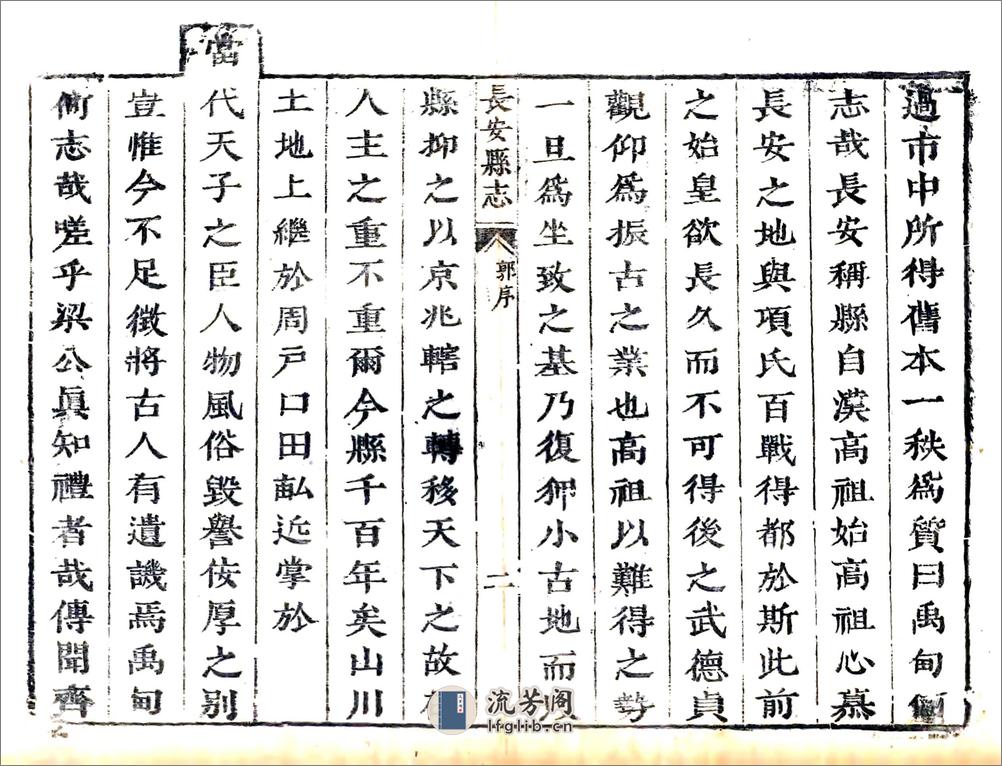 過市中所得舊本一秩為質曰禹甸何
志哉長安稱縣自漢高祖始高祖心慕
長安之地與項氏百戰得都於斯此前
之始皇欲長久而不可得後之武德貞
觀仰為振古之業也高祖以難得之勢
一旦為坐致之基乃復狎小古地而
長安縣志 郭序 二
縣抑之以京兆轄之轉移天下之故
人主之重不重爾今縣千百年矣山川
土地上繼於周戶口田畝近掌於
當
代天子之臣人物風俗毀譽侫厚之別
豈惟今不足徵將古人有遺譏焉禹甸
何志哉嗟乎梁公眞知禮者哉傳聞齊
流芳阁
lfglib.cn